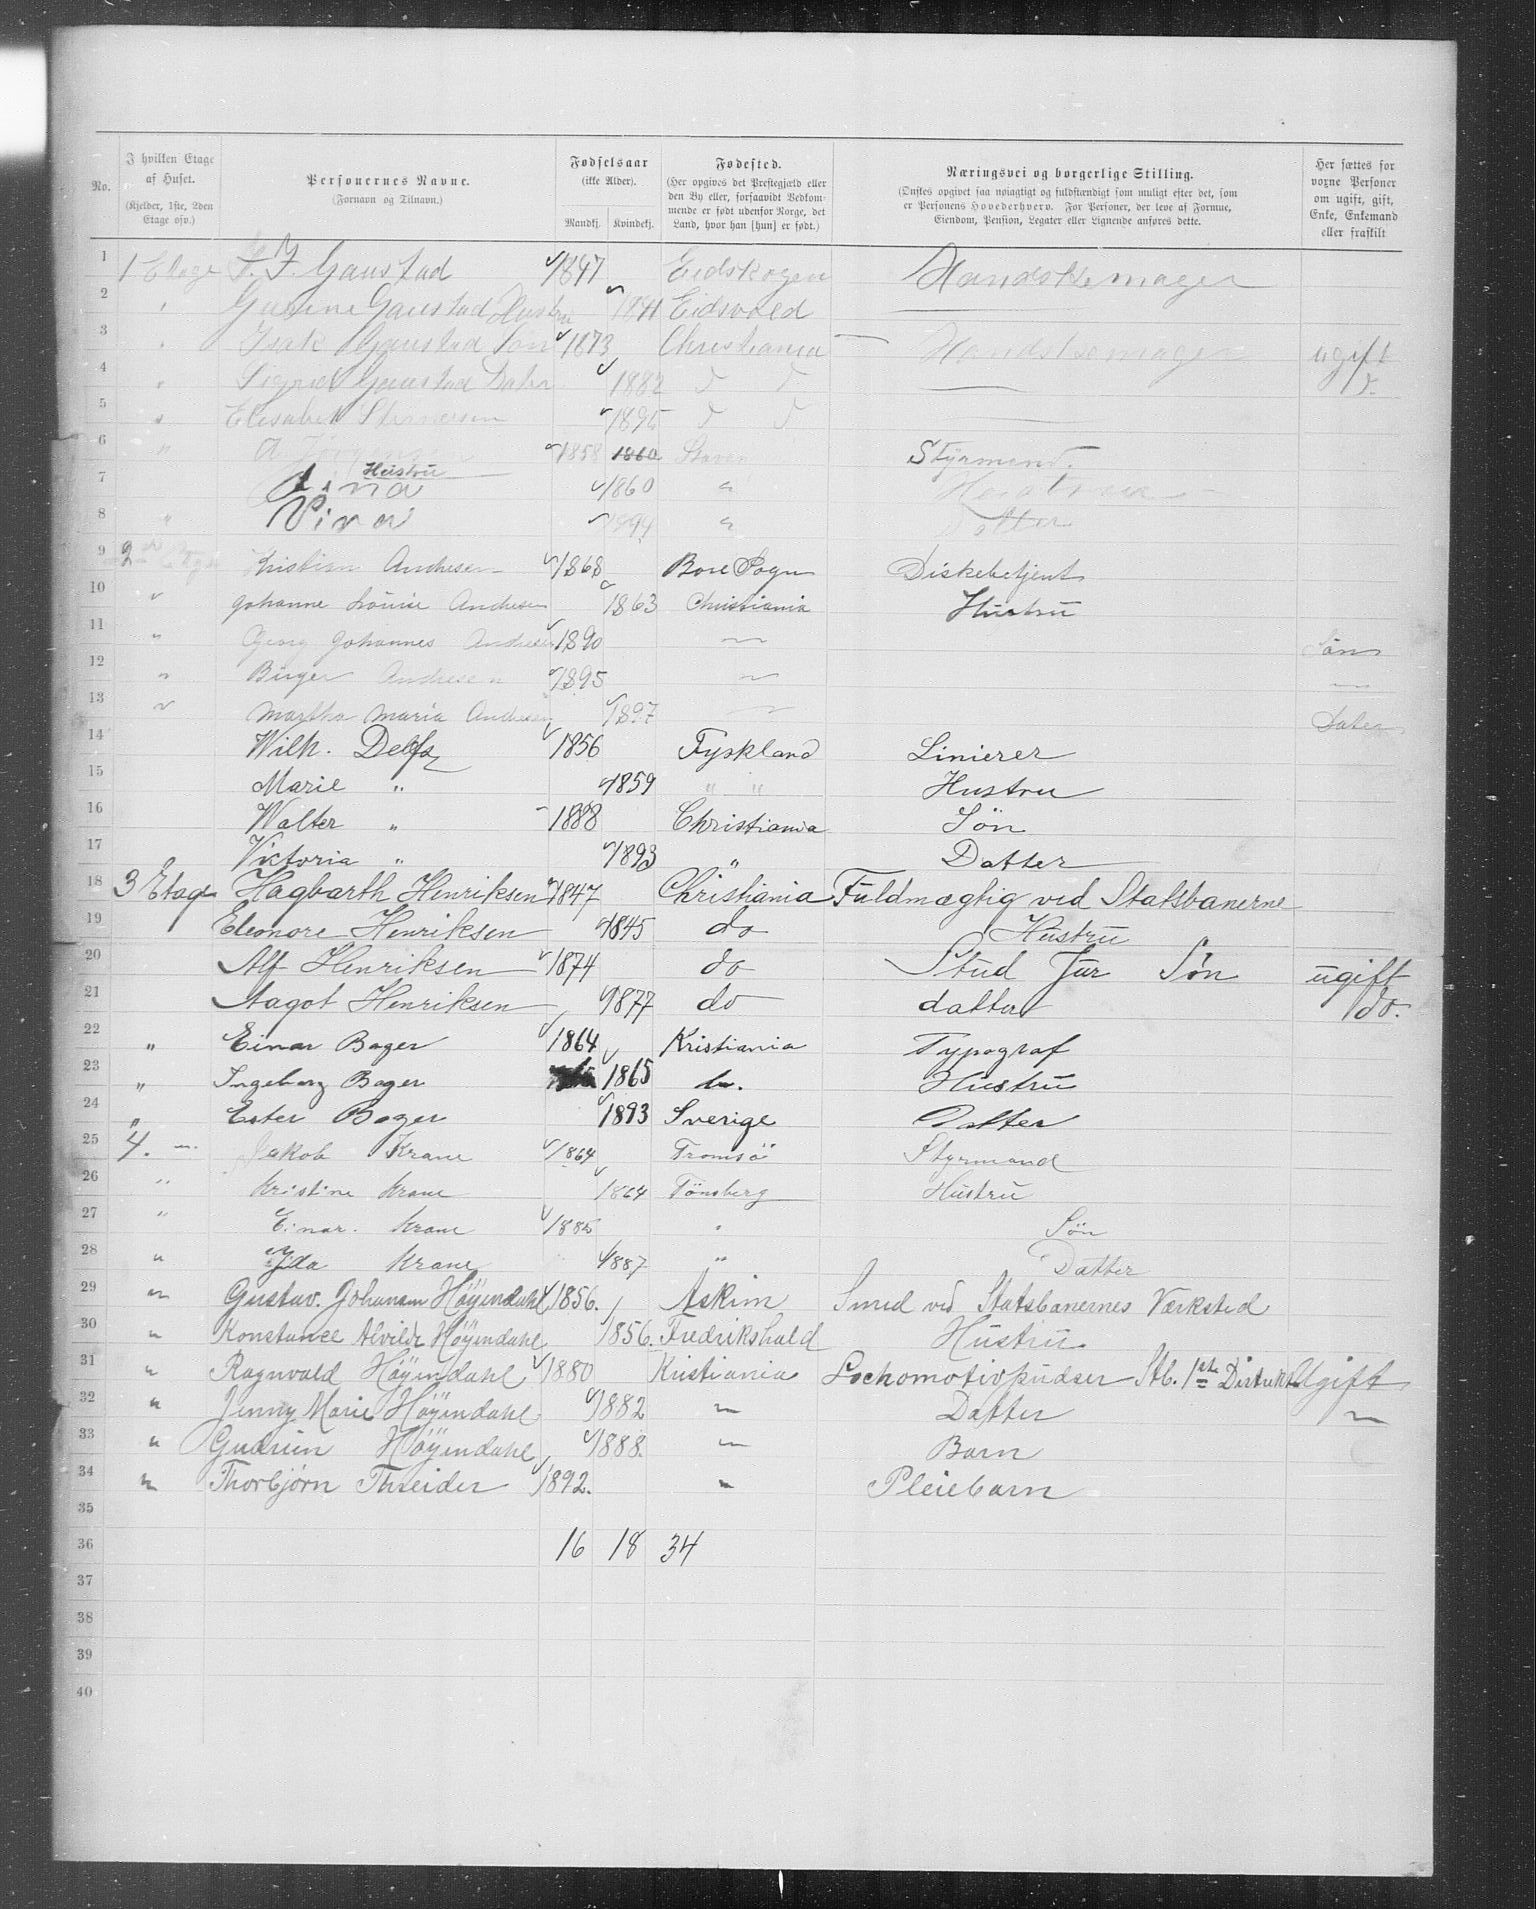 No.
I hvilken Etage af Huset.
(Kjelder, 1ste, 2den Etage osv.)
Personernes Navne.
(Fornavn og Tilnavn.)
Fødselsaar
(ikke Alder).
Mandkj. Kvindekj.
Fødested.
(Her opgives det Prestegjæld eller den By eller, forsaavidt Vedkommende er født udenfor Norge, det Land, hvor han [hun] er født.)
Næringsvei og borgerlige Stilling.
(Ønskes opgivet saa nøiagtigt og fuldstændigt som muligt efter det, som er Personens Hovederhverv. For Personer, der leve af Formue, Eiendom, Pension, Legater eller Lignende anføres dette.
Her sættes for voxne Personer om ugift, gift, Enke, Enkemand eller fraskilt
1 1 Etage Gaustad 1847 Eidskogen Handskemager
2 " Gurine Gaustad Hustru 1841 Eidsvold
3 " Isak Gaustad Søn 1873 Christiania Handskemager ugift
4 " Sigrid Gaustad Dater 1882 d d d.
5 " Elisabet 1895 d d
6 " A 1858 1860 Stavan Styrmand.
7 Hustru 1860 " Hustrue
8 " 1894 " Datter
9 2 Etage Kristian Andresen 1868 Bore Sogn Diskebetjent
10 " Johanne Lovise Andresen 1863 Christiania Hustru
11 " Georg Johannes Andresen 1890 — Sön
12 " Birger Andresen 1895 — —
13 " Martha Maria Andresen 1897 — Dater
14 Wilh. Delfs 1856 Tyskland Linierer
15 Marie " 1859 " " Hustru
16 Walter " 1888 Christiania Sön
17 Victoria " 1893 " Datter
18 3 Etage Hagbarth Henriksen 1847 Christiania Fuldmægtig ved Statsbanerne
19 Eleonore Henriksen 1845 do Hustru
20 Alf Henriksen 1874 do Stud Jur Søn ugift
21 Aagot Henriksen 1877 do datter do.
22 " Einar Bager 1864 Kristiania Typograf
23 " Ingeborg Bager 1865 Hustru
24 " Ester Bager 1893 Sverige Datter
25 4. — Jakob Krane 1864 Tromsö Styrmand
26 " Kristine Krane 1864 Tönsberg Hustru
27 " Einar. Krane 1885 " Sön
28 " Ida Krane 1887 " Datter
29 " Gustav. Johansen Höyendahl 1856. Askim Smed ved Statsbanernes Værksted
30 " Konstance Alvilde Höyendahl 1856. Fredrikshald Hustru
31 " Ragnvald Höyendahl 1880 Kristiania Lochomotivpudser Stb. 1ste Distrikt Ugift
32 " Jenny Marie Höyendahl 1882 " Datter "
33 " Gudrun Höyendahl 1888. " Barn
34 " Thorbjörn 1892. " Pleiebarn
35
36 16 18 34
37
38
39
40